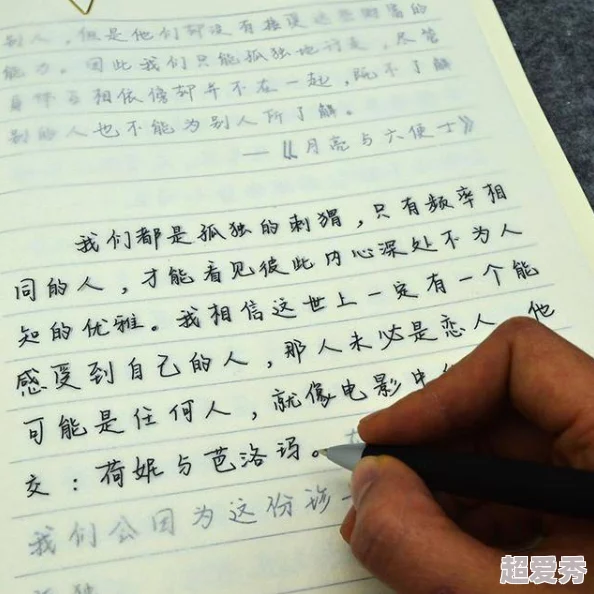 别人，但是他们却没有接受这些财富的
能力。因此我们只能孤独地行走，尽管
身体互相依傍却并不在一起，既不了解
别的人也不能为别人所了解。
——《月亮与六便士》
我们都是孤独的刺猬，只有频率相
同的人，才能看见彼此内心深处不为人
知的优雅。我相信这世上一定有一个能
感受到自己的人，那人未必是恋人，他
可能是任何人，就像电影中
交：荷妮与芭洛玛。
我们会因为这份珍
超爱秀